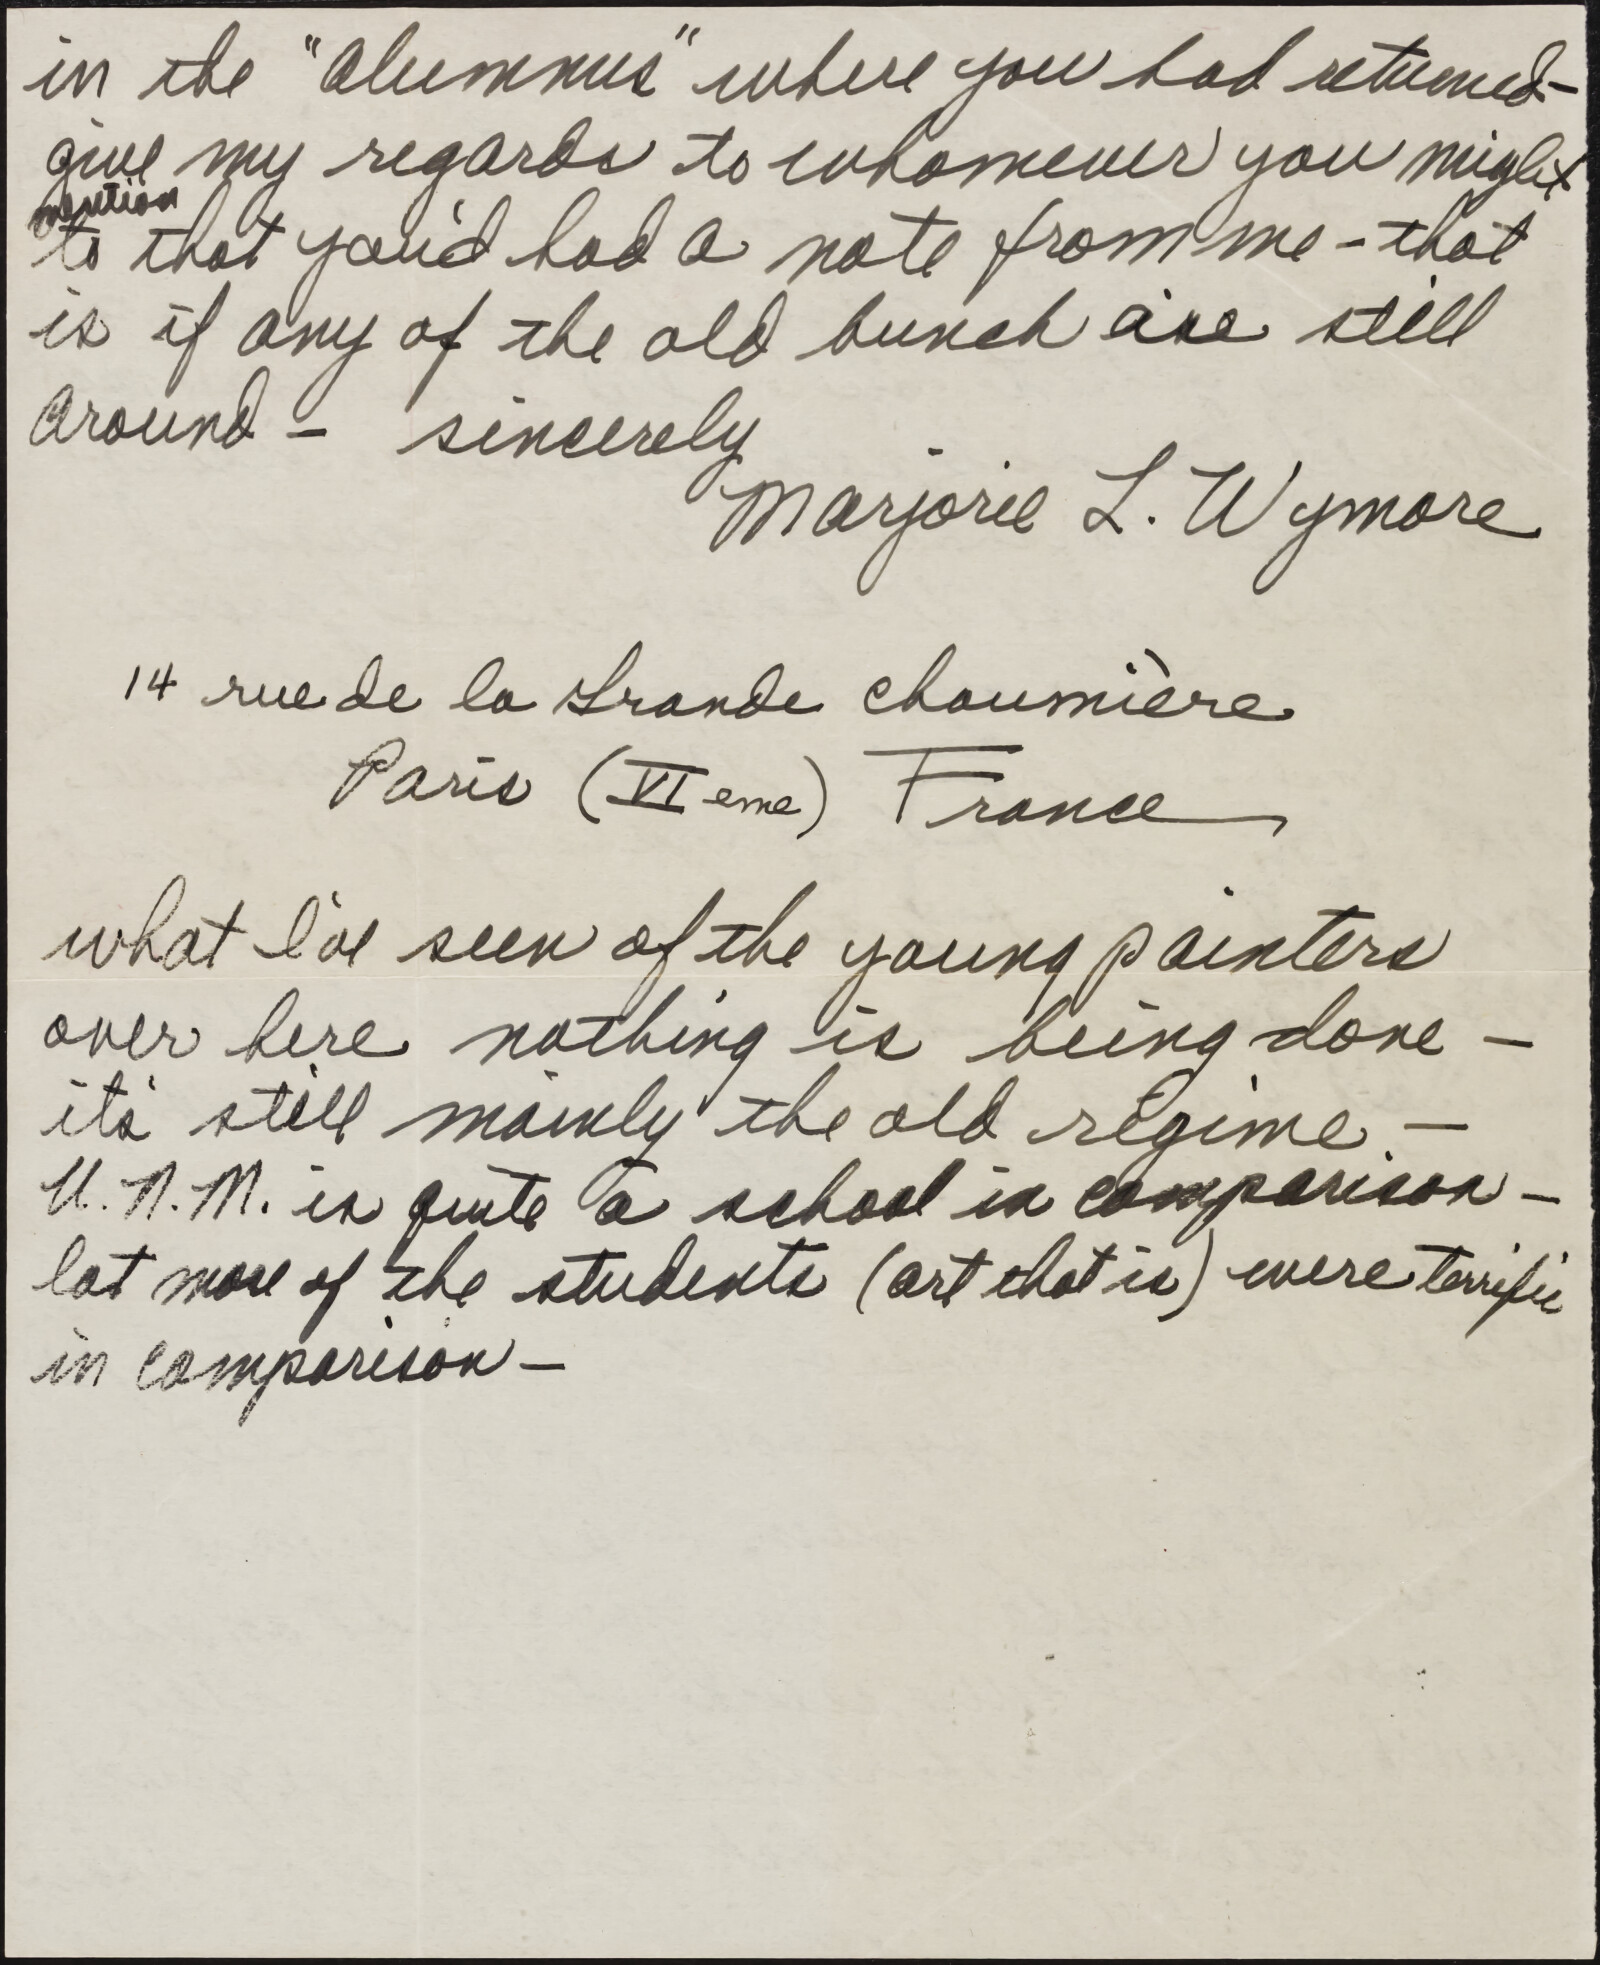 in the "Alumnus" where you had returned-
give my regards to whomever you might
mention
to that you'd had a note from me - that
is if any of the old bunch are still
around - sincerely
Marjorie L. Wymore
14 rue de la Grande Chaumière
Paris (VI eme) France
what I've seen of the young painters
over here nothing is being done -
it's still mainly the old régime -
U.N.M. is quite a school in comparison -
lot more of the students (art that is) were terrific
in comparison -